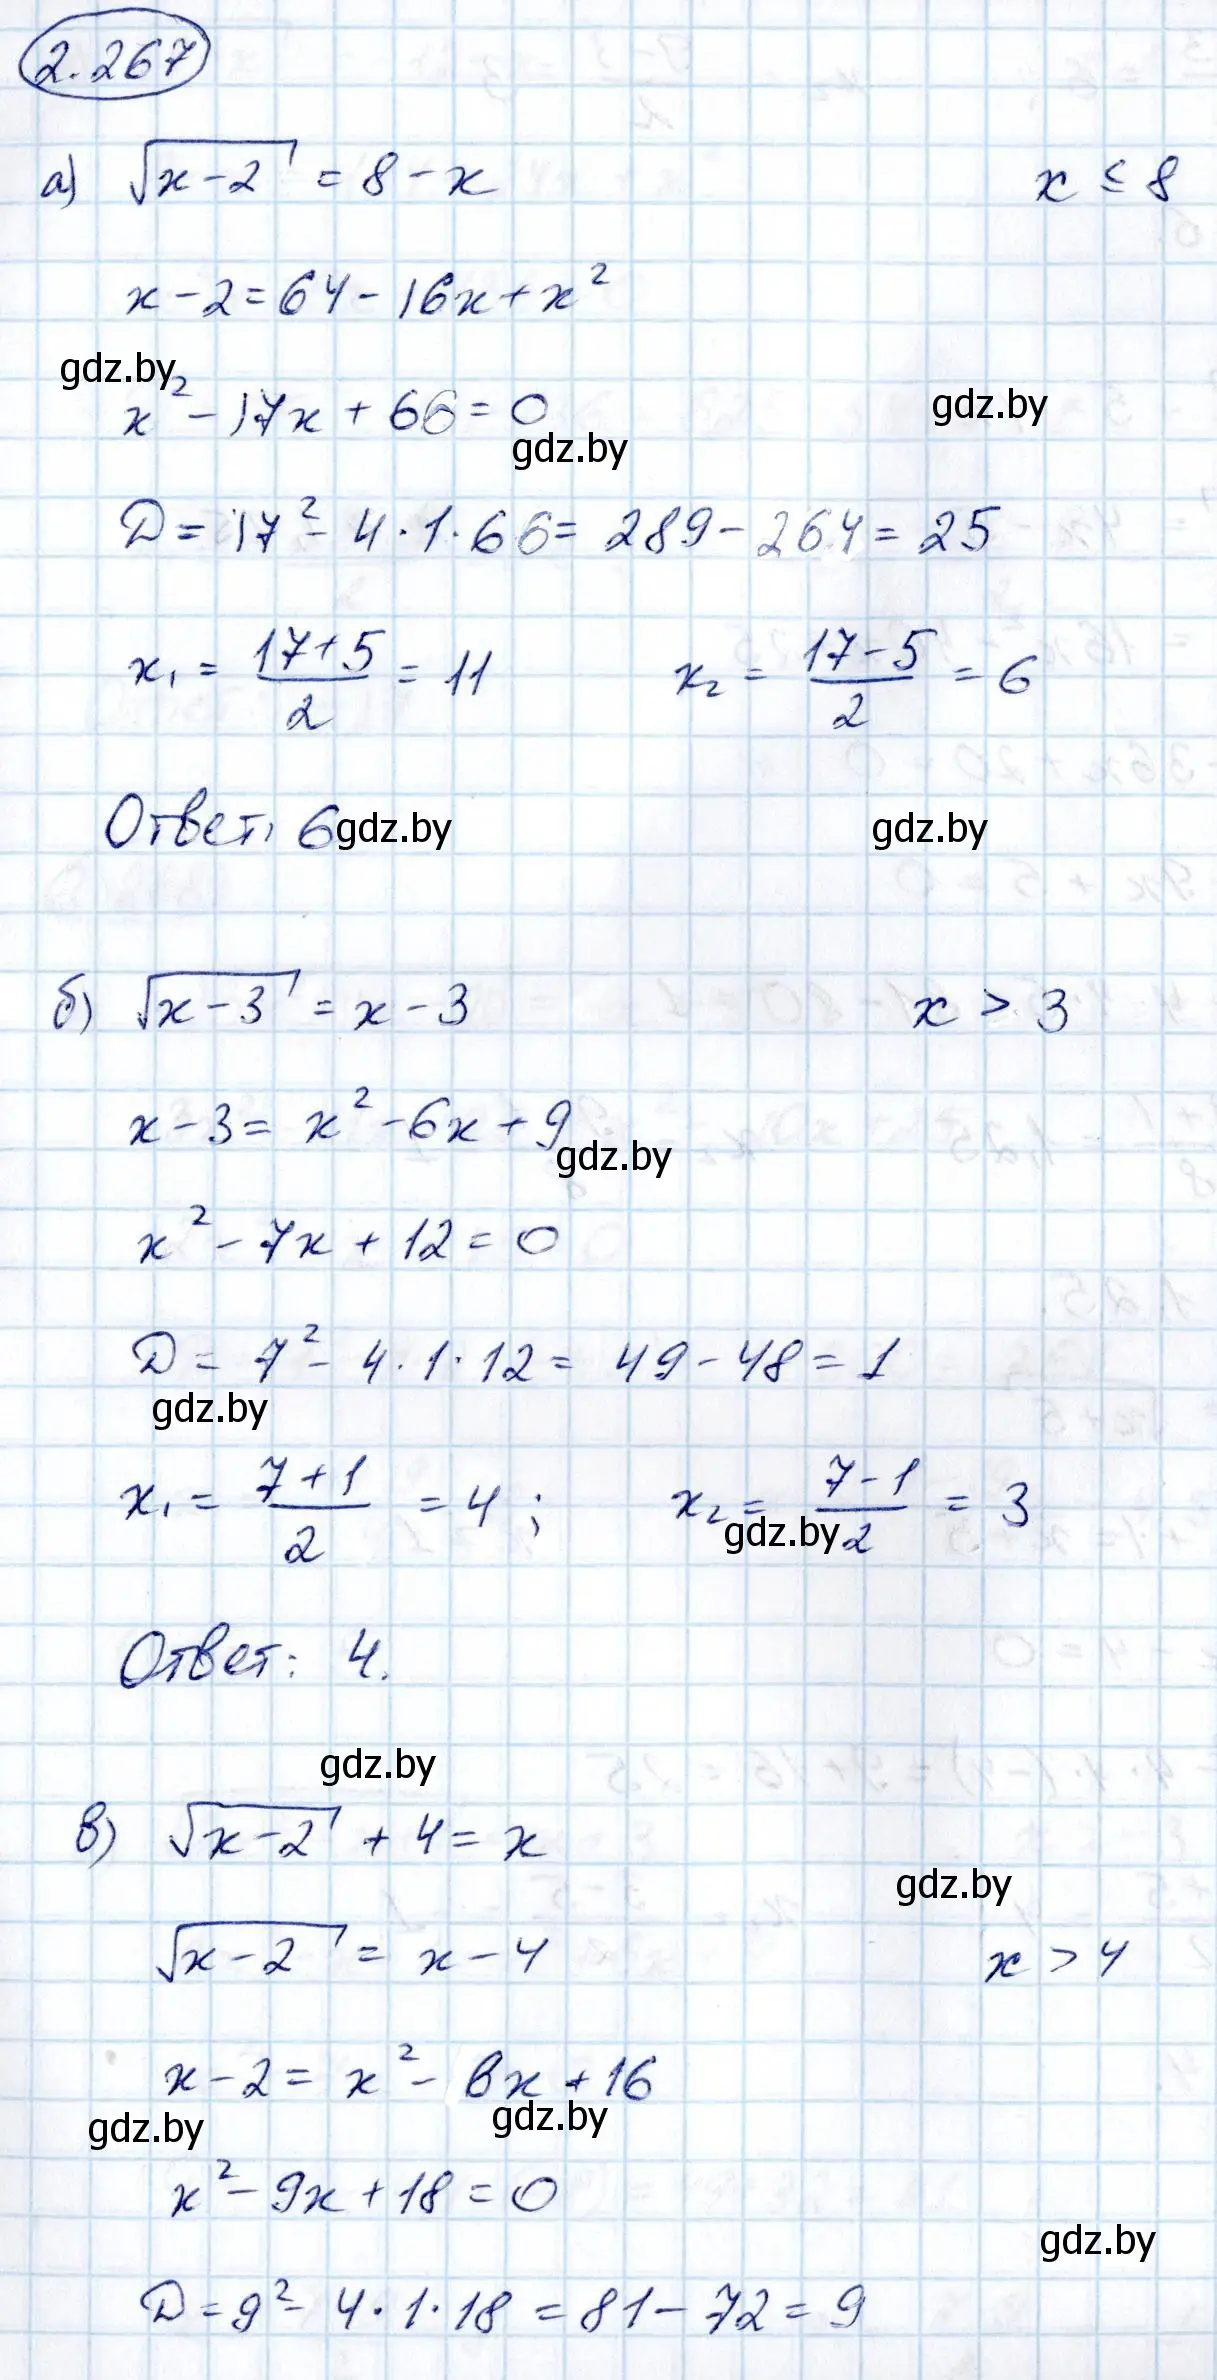 2.267
а) √x-2 = 8-x x ≤ 8
x-2=64-16x+x²
gdz.by
x²-17x+66=0 gdz.by
gdz.by
D=17²-4·1·66=289-264=25
x₁ = 17+5/2 = 11 x₂ = 17-5/2 = 6
Ответ: 6 gdz.by gdz.by
б) √x-3 = x-3 x > 3
x-3= x²-6x+9
gdz.by
x²-7x+12=0
D= 7²-4·1·12= 49-48=1
gdz.by
x₁= 7+1/2 = 4; x₂= 7-1/2 = 3
gdz.by
Ответ: 4.
gdz.by
в) √x-2 + 4=x
gdz.by
√x-2 = x-4 x > 4
x-2= x²-8x+16
gdz.by gdz.by
x²-9x+18=0
gdz.by
D=9²-4·1·18=81-72=9